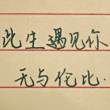 此生遇见你
无与伦比.